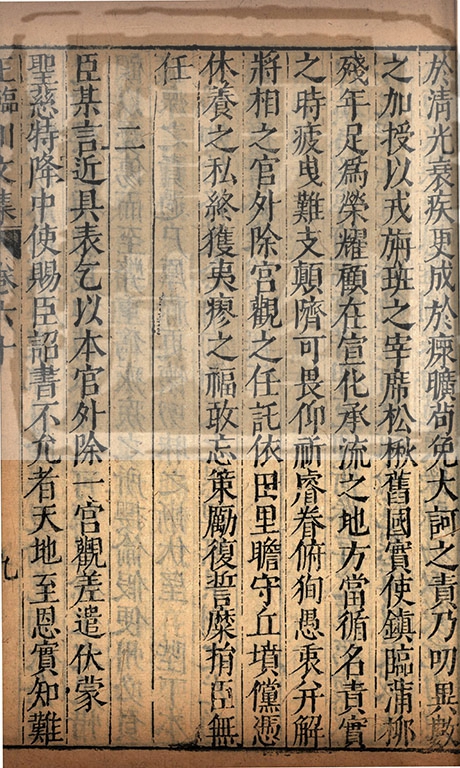 於清光衰疾更成於瘝曠苟免大訶之責乃叨異數
之加授以戎旃班之宰席松楸舊國實使鎮臨蒲柳
殘年足爲榮耀顧在宣化承流之地方當循名責實
之時疲曳難支顛隮可畏仰祈睿眷俯徇愚衷并解
將相之官外除宮觀之任託依田里瞻守丘墳儻憑
休養之私終獲夷瘳之福敢忘策勵復誓糜捐臣無
任
二
臣某言近具表乞以本官外除一宮觀差遣伏蒙
聖慈特降中使賜臣詔書不允者天地至恩實知難
王臨川文集 卷六十 九